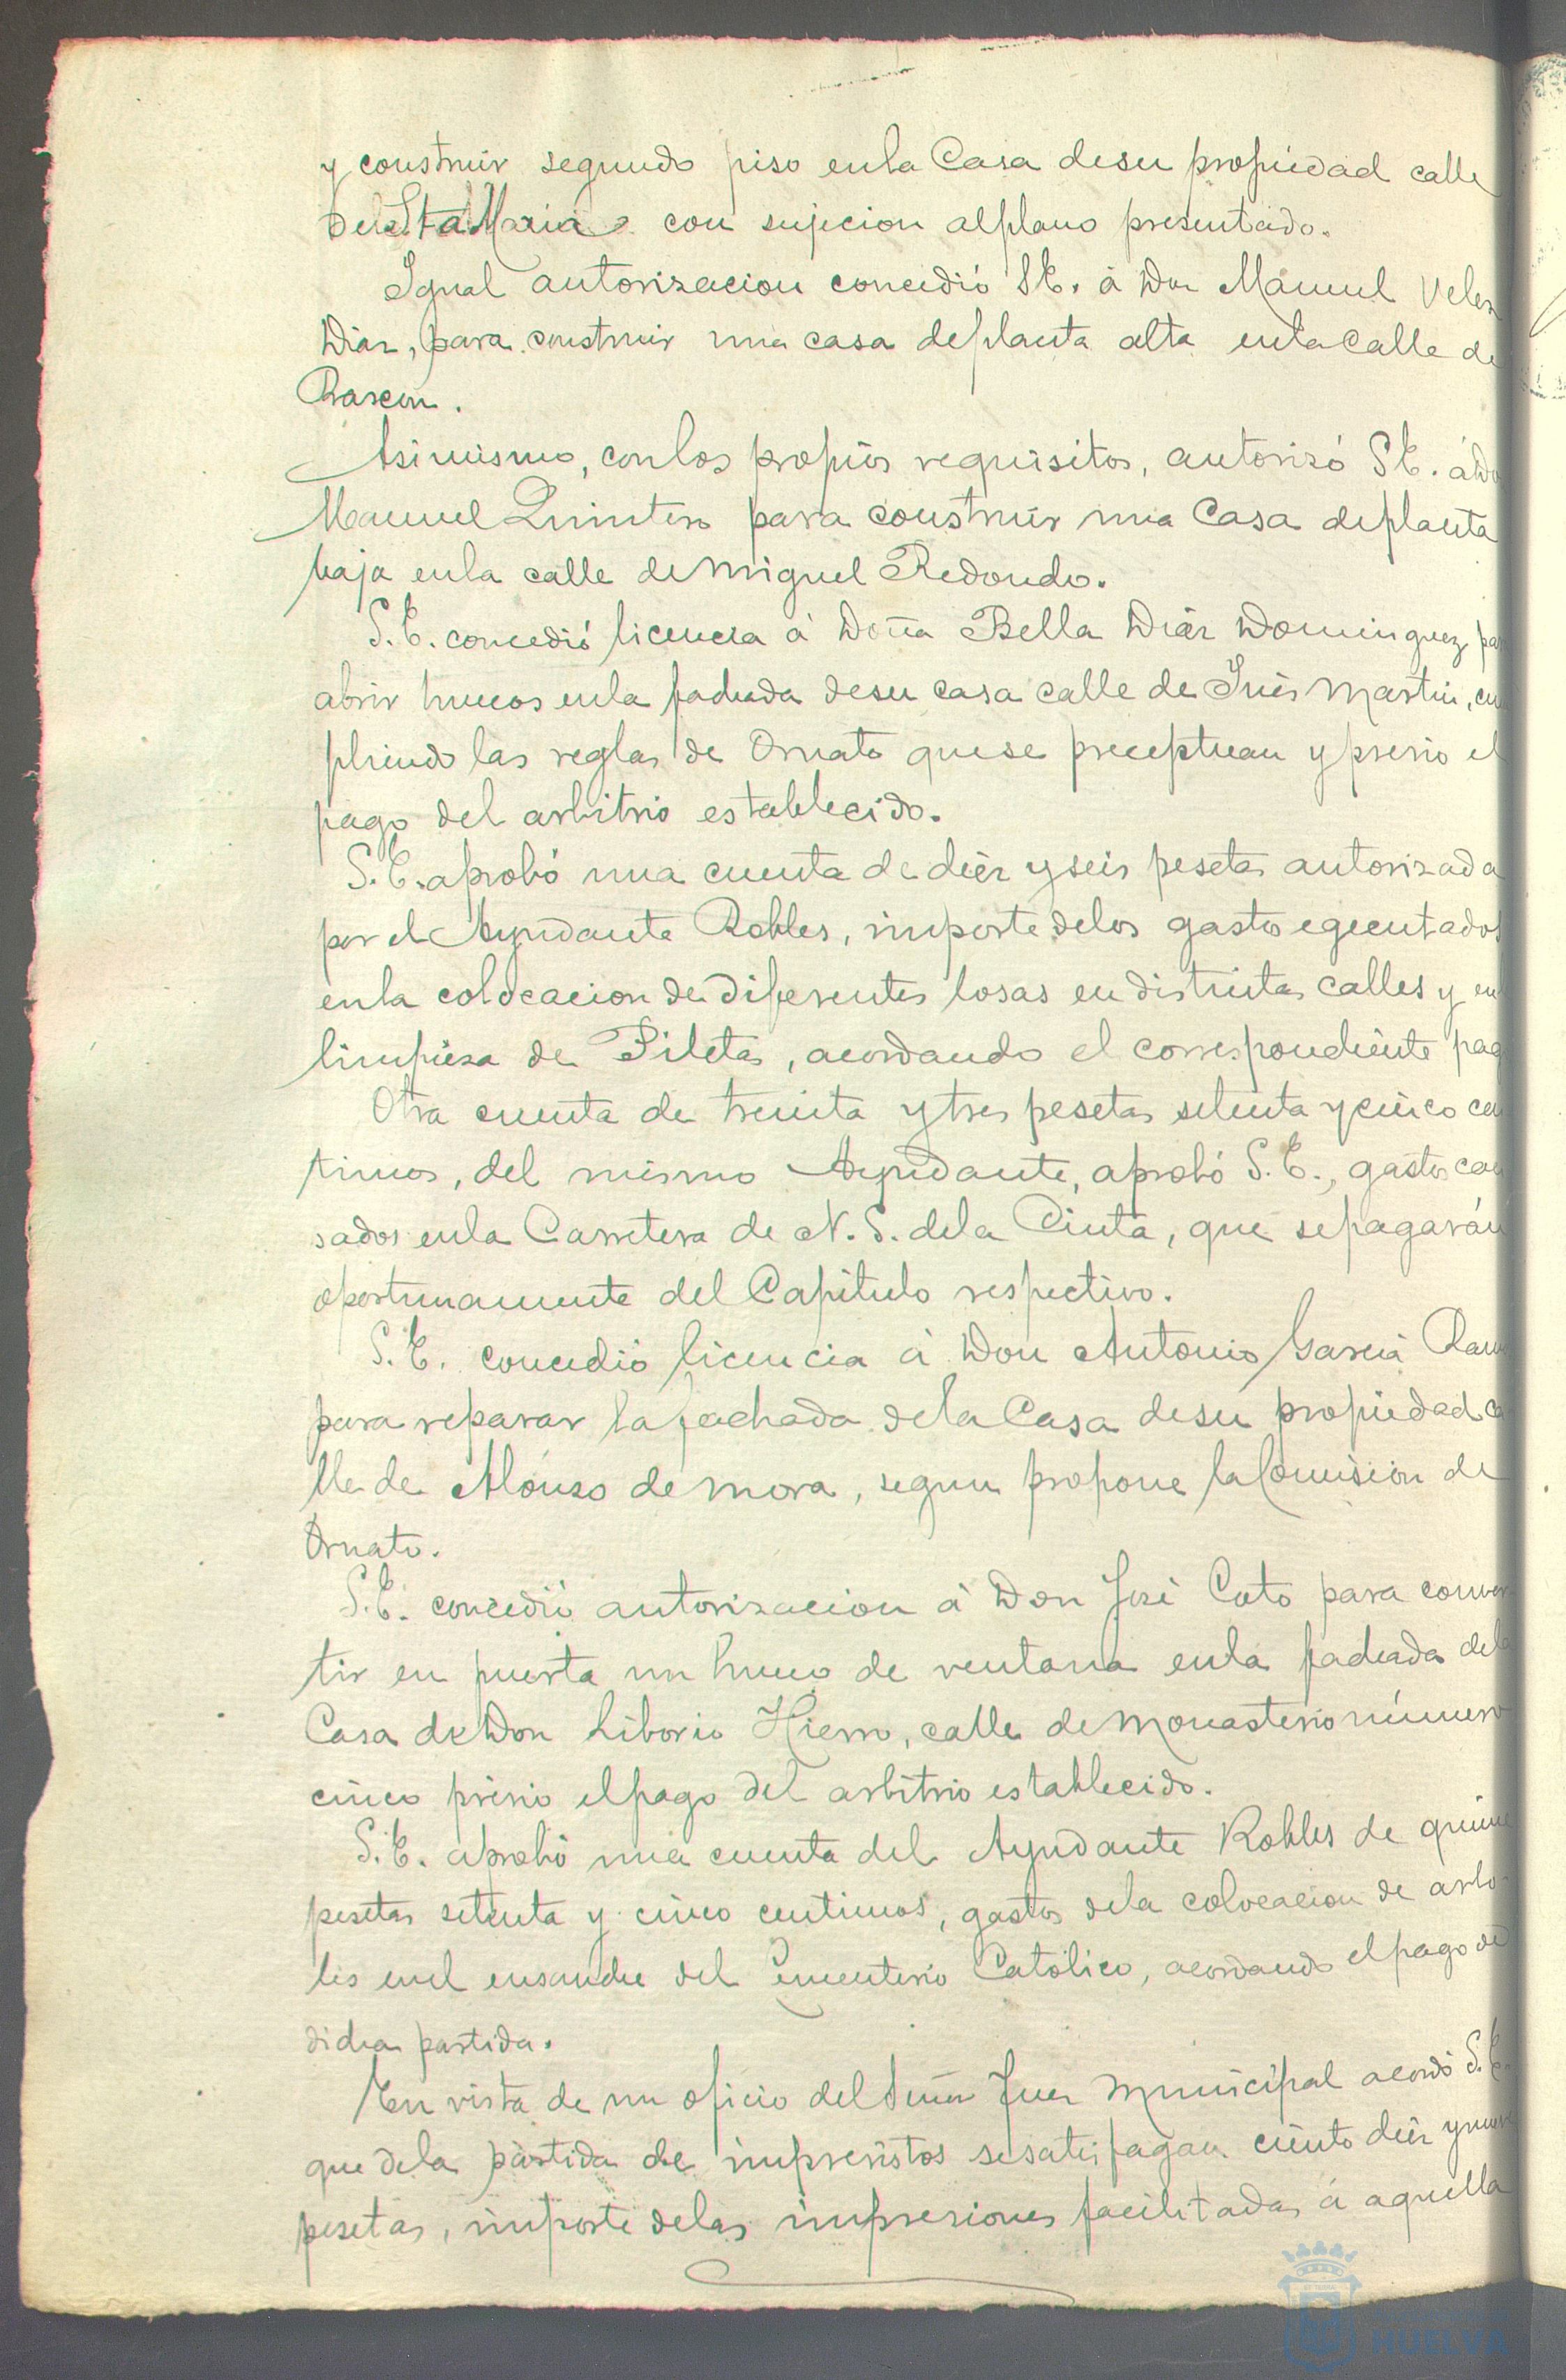 y construir segundo piso en la Casa de su propiedad calle
de Sta Maria con sujecion al plano presentado.
Igual autorizacion concedió S.E. á Don Manuel Velez
Diaz, para construir una casa de planta alta en la Calle de
Rascon.
Asimismo, con los propios requisitos, autorizó S.E. á Do
Manuel Quintero para construir una Casa de planta
baja en la calle de Miguel Redondo.
S.E. concedió licencia á Doña Bella Diaz Dominguez pa
abrir huecos en la fachada de su casa calle de Inés Martin, cu
pliendo las reglas de Ornato que se preceptuan y previo el
pago del arbitrio establecido.
S.E. aprobó una cuenta de diez y seis pesetas autorizada
por el Ayudante Robles, importe de los gastos egecutados
en la colocacion de diferentes losas en distintas calles y en
limpieza de Piletas, acordando el correspondiente pag
Otra cuenta de treinta y tres pesetas setenta y cinco cen
timos, del mismo Ayudante, aprobó S.E., gastos cau
sados en la Carretera de N. S. de la Cinta, que se pagarán
oportunamente del Capitulo respectivo.
S.E. concedió licencia á Don Antonio Garcia Ram
para reparar la fachada de la Casa de su propiedad ca
lle de Alonso de Mora, segun propone la Comision de
Ornato.
S.E. concedió autorizacion á Don José Coto para conver
tir en puerta un hueco de ventana en la fachada de la
Casa de Don Liborio Hierro, calle de Monasterio número
cinco previo el pago del arbitrio establecido.
S.E. aprobó una cuenta del Ayudante Robles de quince
pesetas setenta y cinco centimos, gastos de la colocacion de arbo
les en el ensanche del Cementerio Católico, acordando el pago de
dicha partida.
En vista de un oficio del Señor Juez Municipal acordó S.E.
que de la partida de imprevistos se satisfagan ciento diez y nueve
pesetas, importe de las impresiones facilitadas á aquella
HUELVA